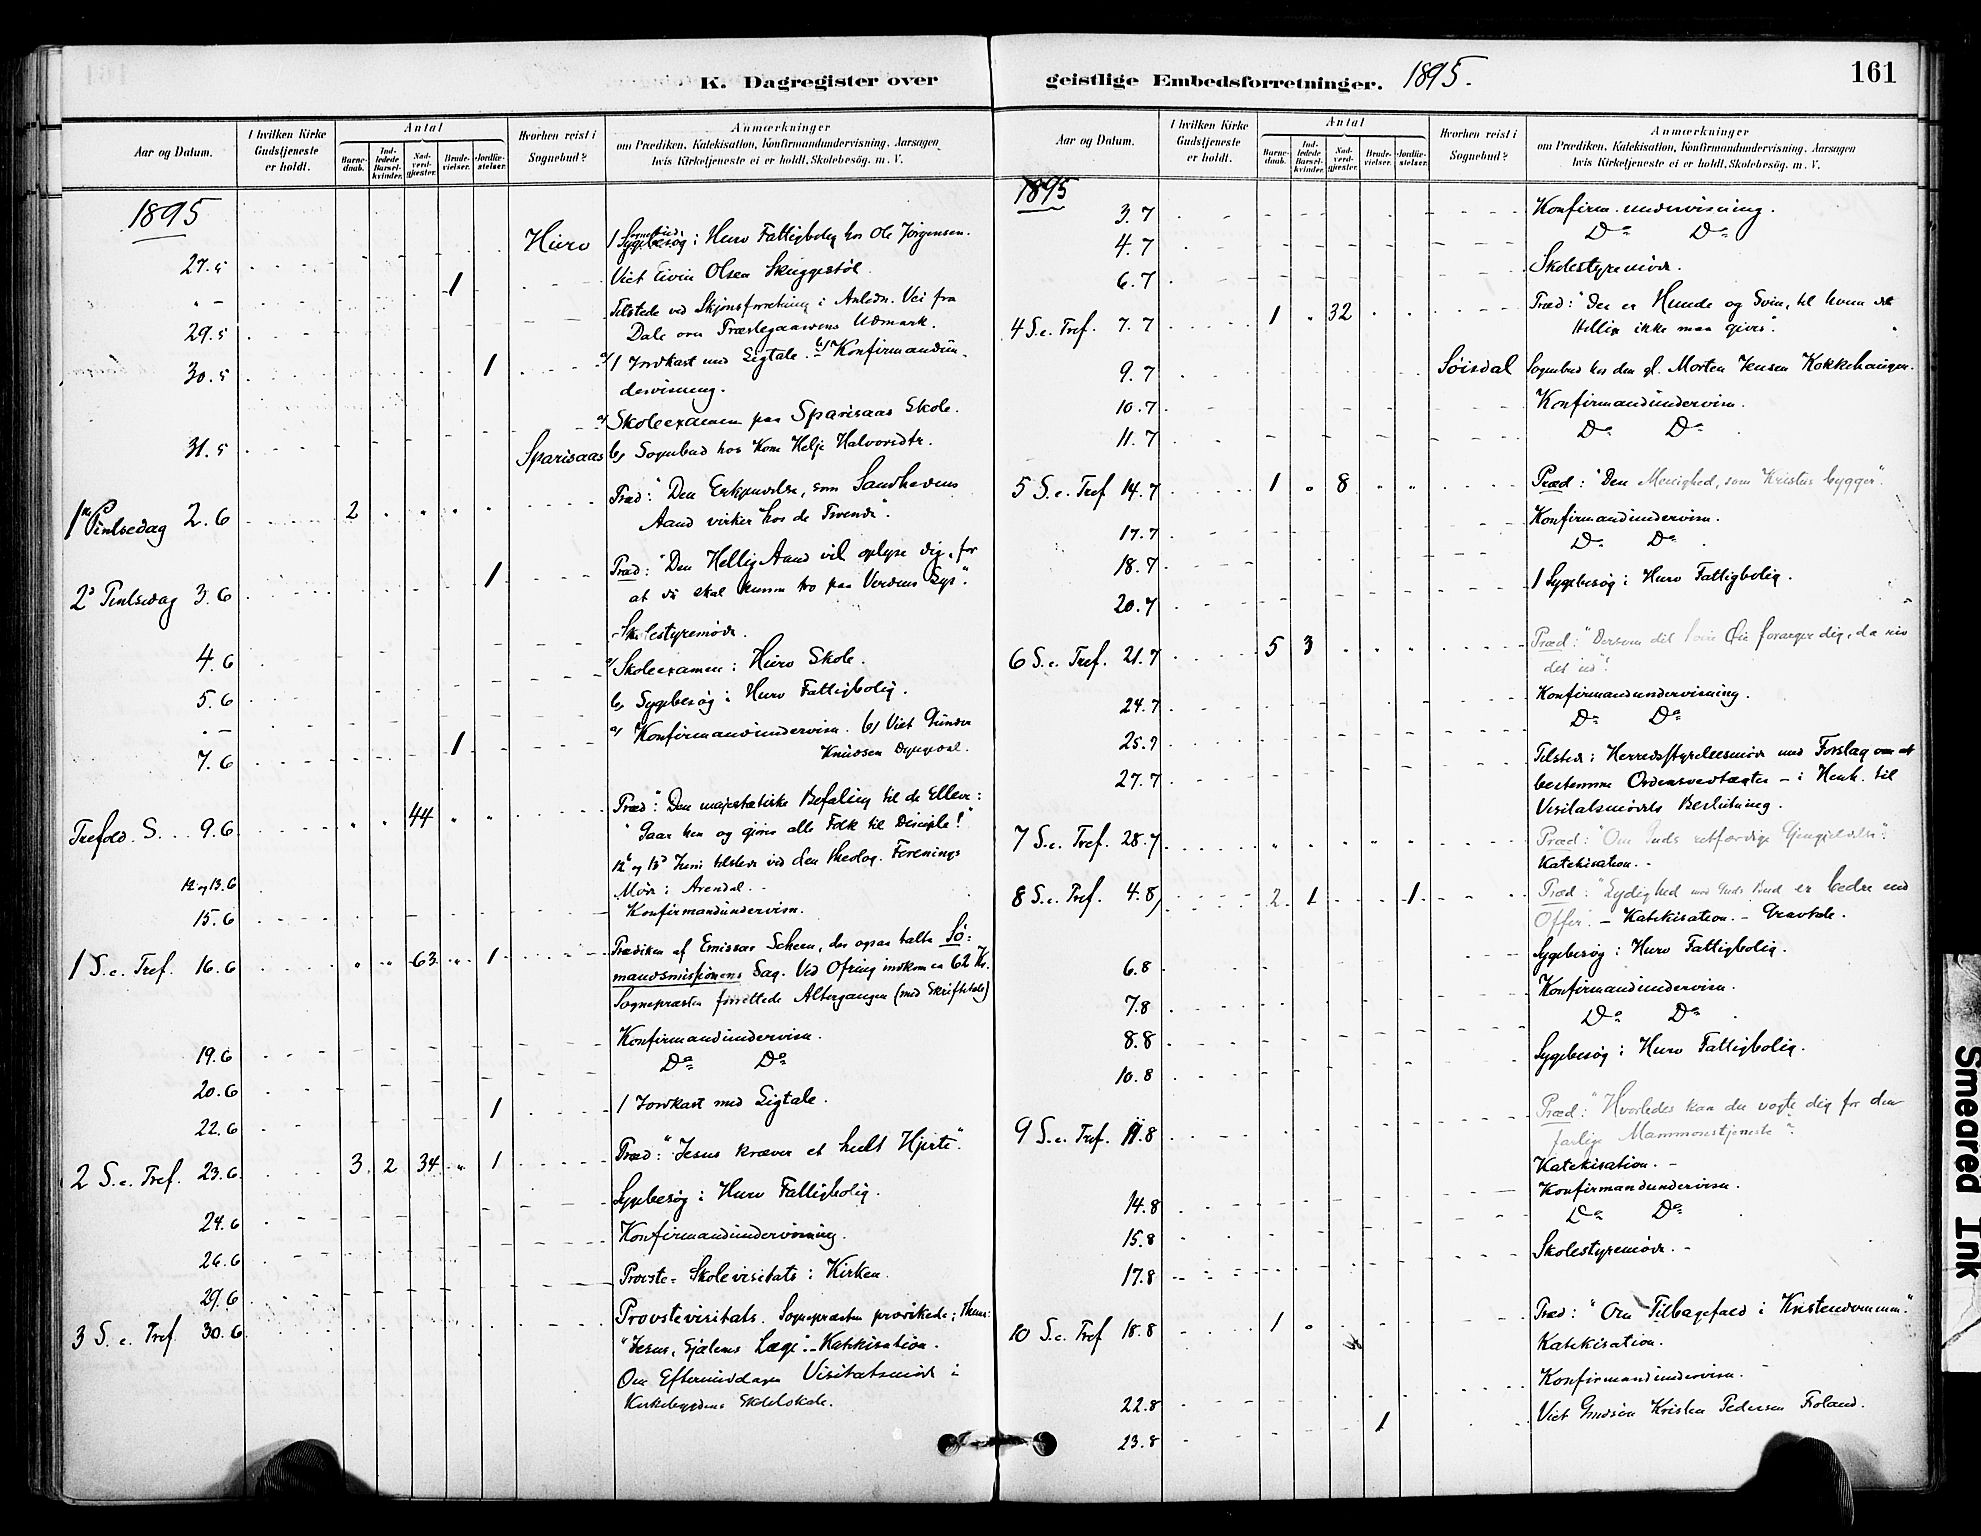 K. Dagregister over
Aar og Datum.
I hvilken Kirke Gudstjeneste er holdt.
Antal
Barnedaab.
Indledede Barselkvinder.
Nadverdgjester.
Brudevielser.
Jordfæstelser.
Hvorhen reist i Sognebud?
Anmærkninger
om Prædiken, Katekisation, Konfirmandundervisning, Aarsagen
hvis Kirketjeneste ei er holdt, Skolebesøg. m. V.
1895
Hierv 1 Sygebesøg i Hurv Fattigbolig hos Ole Jørgensen.
27.5 1 Viet Eivin Olsen Skuggestøl.
" - Tilstede ved Skjønsforretning i Anledn. Vei fra
29.5 Dale over Præstegaardens Udmark.
30.5 1 a) 1 Jordkast med Ligtale. b) Konfirmandun-
dervisning.
a) Skoleexamen paa Sparisaas Skole.
31.5 Sparisaas b) Sognebud hos Kone Helje Halvorsdtr.
Præd: "Den Erkjendelse, som Sandhedens
1ste Pintsedag 2.6 2 Aand virker hos de Troende".
Præd: "Den Hellig Aand vil oplyse dig, for
2d Pintsedag 3.6 1 at du skal kunne tro paa Verdens Lys".
Skolestyremøde.
4.6 a) Skoleexamen i Hierv Skole.
5.6 b) Sygebesøg i Hurv Fattigbolig.
" - a) Konfirmandundervisn. b) Viet Gunder
7.6 1 Knudsen
Præd: "Den majestætiske Befaling til de Elleve:
Trefold. S. 9.6 44 "Gaar hen og gjører alle Folk til Disciple!"
12te og 13de Juni tilstede ved den theolog. Forenings
12 og 13.6 Møde i Arendal. -
15.6 Konfirmandundervisn.
Prædiken af Emissær Scheen, der ogsaa talte Sø-
1 S. e. Tref. 16.6 63 1 mandsmissionens Sag. Ved Ofring indkom ca 62 Kr.
Sognepræsten forrettede Altergangen (med Skriftetale)
Konfirmandundervisn.
19.6 Do Do
20.6 1 1 Jordkast med Ligtale.
22.6
Præd: "Jesus kræver et helt Hjerte".
2 S. e. Tref. 23.6 3 2 34 1
Sygebesøg i Hurv Fattigbolig.
24.6 Konfirmandundervisning.
26.6 Provste-Skolevisitats i Kirken.
29.6 Provstevisitats. Sognepræsten prædikede;
3 S. e. Tref. 30.6 "Jesus, Sjælens Læge". - Katekisation.
Om Eftermiddagen Visitatsmøde i
Kirkebygdens Skolelokale.
geistlige Embedsforretninger. 1895.
161
Aar og Datum.
I hvilken Kirke Gudstjeneste er holdt.
Antal
Barnedaab.
Indledede Barselkvinder.
Nadverdgjester.
Brudevielser.
Jordfæstelser.
Hvorhen reist i Sognebud?
Anmærkninger
om Prædiken, Katekisation, Konfirmandundervisning, Aarsagen
hvis Kirketjeneste ei er holdt, Skolebesøg. m. V.
1895
3.7 Konfirm.undervisning.
4.7 Do Do
6.7 Skolestyremøde.
4 S. e. Tref. 7.7 1 32 Præd: "Der er Hunde og Svin, til hvem det
Hellige ikke maa gives".
9.7 Søisdal Sognebud hos den gl. Morten Jensen Kokkehaugen.
10.7 Konfirmandundervisn.
11.7 Do Do
5 S. e. Tref 14.7 1 8 Præd: "Den Menighed, som Kristus bygger".
17.7 Konfirmandundervisn.
18.7 Do Do
20.7 1 Sygebesøg i Hurv Fattigbolig.
6 S. e. Tref. 21.7 5 3 Præd: "Dersom dit høire Øie forarger dig, da riv
det ud".
24.7 Konfirmandundervisning.
25.7 Do Do
27.7 Tilstede i Herredsstyrelsesmøde med Forslag om at
bestemme Ordensvedtægter - i Henh. til
Visitatsmødets Beslutning.
7 S. e. Tref. 28.7 Præd: "Om Guds retfærdige Gjengjældelse".
Katekisation.
8 S. e. Tref. 4.8 2 1 1 Præd: "Lydighed mod Guds Bud er bedre end
Offer". - Katekisation. - Gravtale.
6.8 Sygebesøg i Hurv Fattigbolig.
7.8 Konfirmandundervisn.
8.8 Do Do
10.8 Sygebesøg i Hurv Fattigbolig.
9 S. e. Tref. 11.8 Præd: "Hvorledes kan du vogte dig for den
farlige Mammonstjeneste".
Katekisation. -
14.8 Konfirmandundervisn.
15.8 Do Do
17.8 Skolestyremøde. -
10 S. e. Tref 18.8 1 Præd: "Om Tilbagefald i Kristendommen".
Katekisation.
22.8 Konfirmandundervisn.
23.8 1 Viet Kristen Pedersen Froland.
Smeared Ink